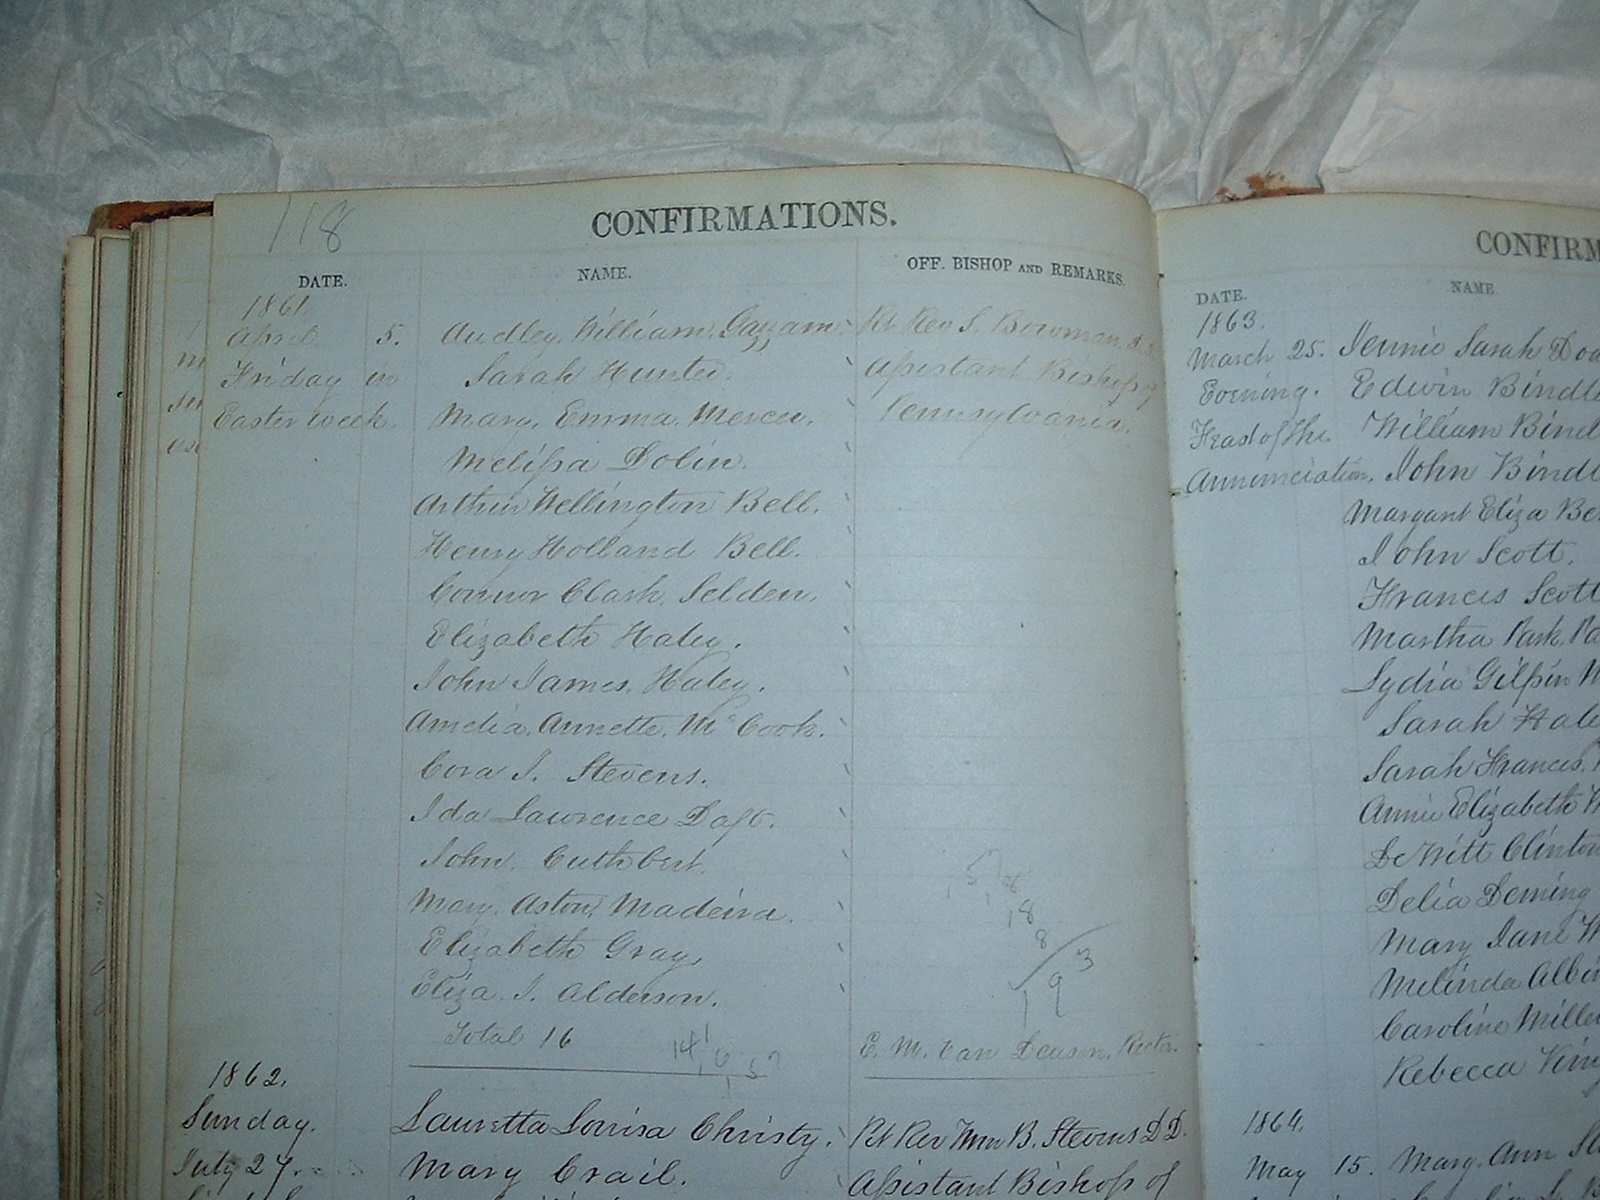 118
CONFIRMATIONS.
DATE. NAME. OFF. BISHOP AND REMARKS.
1861.
April 5. Audley, William, Gazzam. Rt Rev S. Bowman,
Friday in Sarah Hunter. Assistant Bishop of
Easter week. Mary, Emma, Mercer. Pennsylvania.
Melissa Dolin.
Arthur Wellington Bell.
Henry Holland Bell.
Connor Clark, Selden.
Elizabeth Haley.
John James, Haley.
Amelia, Annette, McCook.
Cora J. Stevens.
Ida Lawrence Daft.
John, Cuthbert.
Mary, Aston, Madeira.
Elizabeth Gray,
Eliza. J. Alderson.
Total 16 E. M. Van Deusen, Rector.
18
8
193
1862.
Sunday. Lauretta Louisa Christy. Rt Rev Wm B. Stevens D.D.
July 27. Mary Crail. Assistant Bishop of
CONFIRM
DATE. NAME.
1863.
March 25. Jennie Sarah
Evening. Edwin Bindl
Feast of the William Bind
Annunciation. John Bind
Margaret Eliza Be
John Scott.
Francis Scott
Martha Park
Lydia Gilpin
Sarah Hale
Sarah Frances
Annie Elizabeth
DeWitt Clinton
Delia Deming
Mary Jane
Melinda Albi
Caroline Mille
Rebecca King
1864.
May 15. Mary. Ann